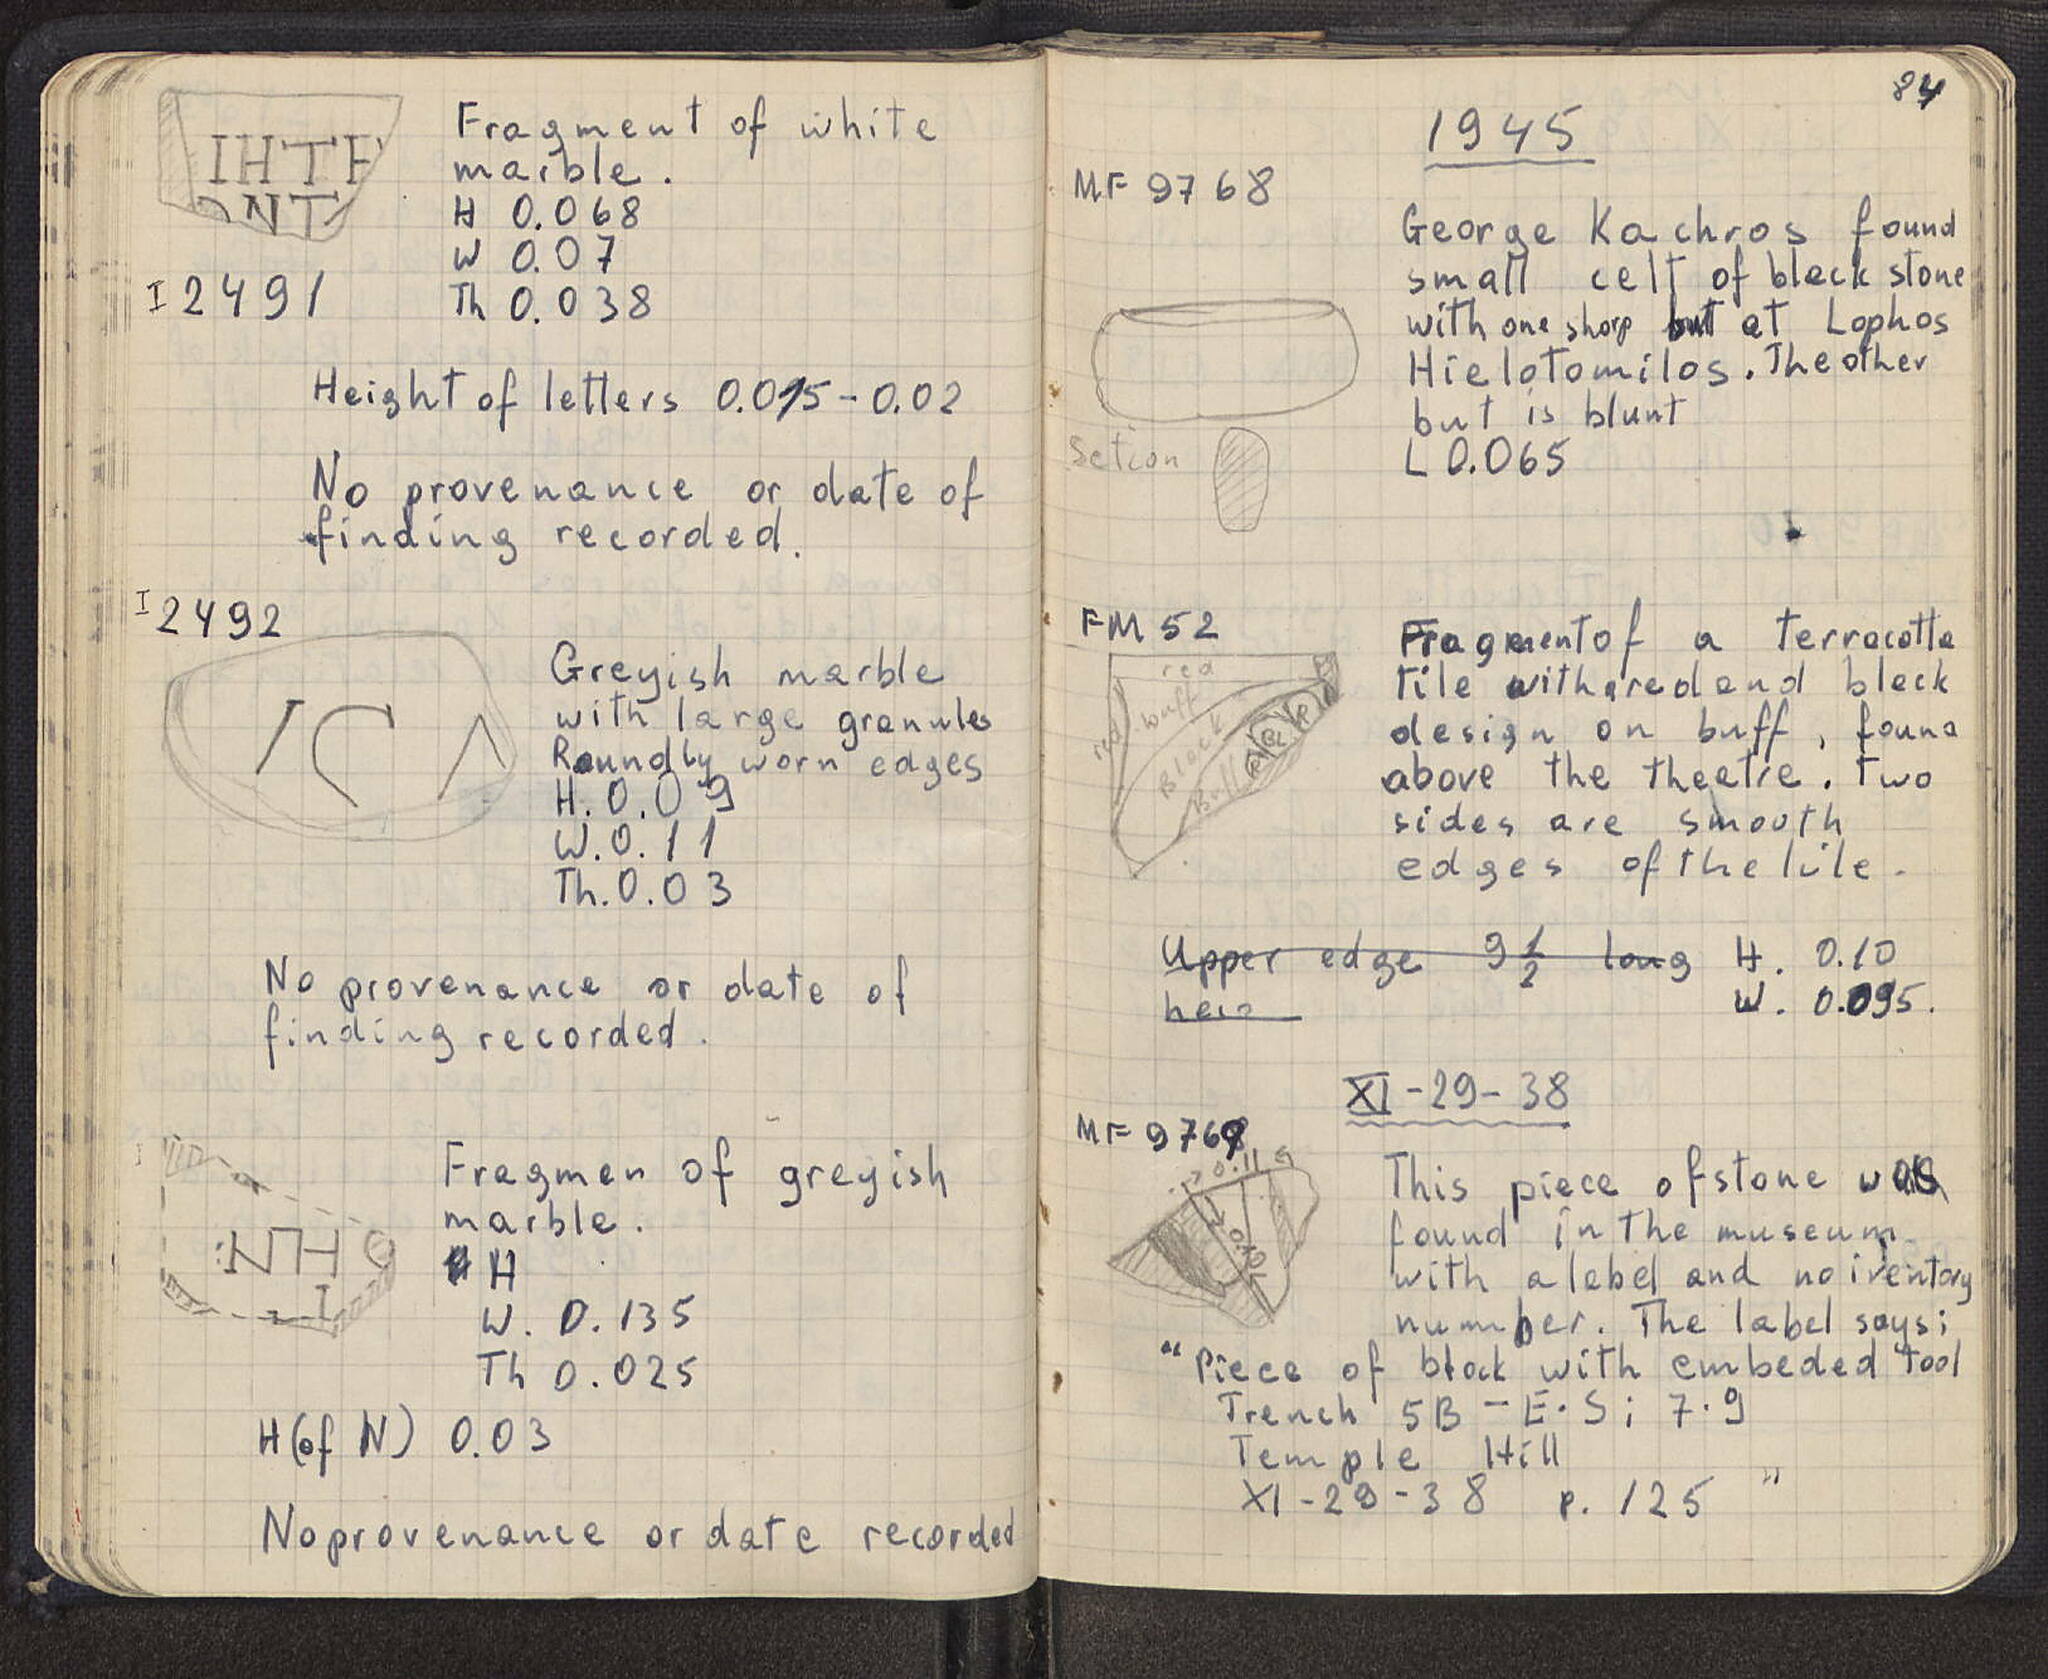 IHTF
ONT
Fragment of white
marble.
H 0.068
W 0.07
Th 0.038
I 2491
Height of letters 0.015 - 0.02
No provenance or date of
finding recorded.
I 2492
Greyish marble
with large granules
Roundly worn edges
H. 0.09
W. 0.11
Th. 0.03
No provenance or date of
finding recorded.
NHO
I
Fragmen of greyish
marble.
H
W. 0.135
Th 0.025
H (of N) 0.03
No provenance or date recorded
84
1945
MF 9768
George Kachros found
small celt of black stone
with one sharp but at Lophos
Hielotomilos. The other
but is blunt
L 0.065
Setion
FM 52
red
red
buff
Black
Buff
R
BL
R
Fragment of a terracotta
tile with red and black
design on buff, found
above the theatre. Two
sides are smooth
edges of the tile.
Upper edge 9 1/2 long
H. 0.10
W. 0.095.
XI - 29 - 38
MF 9769
0.11
This piece of stone was
found in the museum
with a label and no iventory
number. The label says:
"Piece of block with embeded tool
Trench 5B - E. S; 7.9
Temple Hill
XI - 29 - 38 p. 125 "